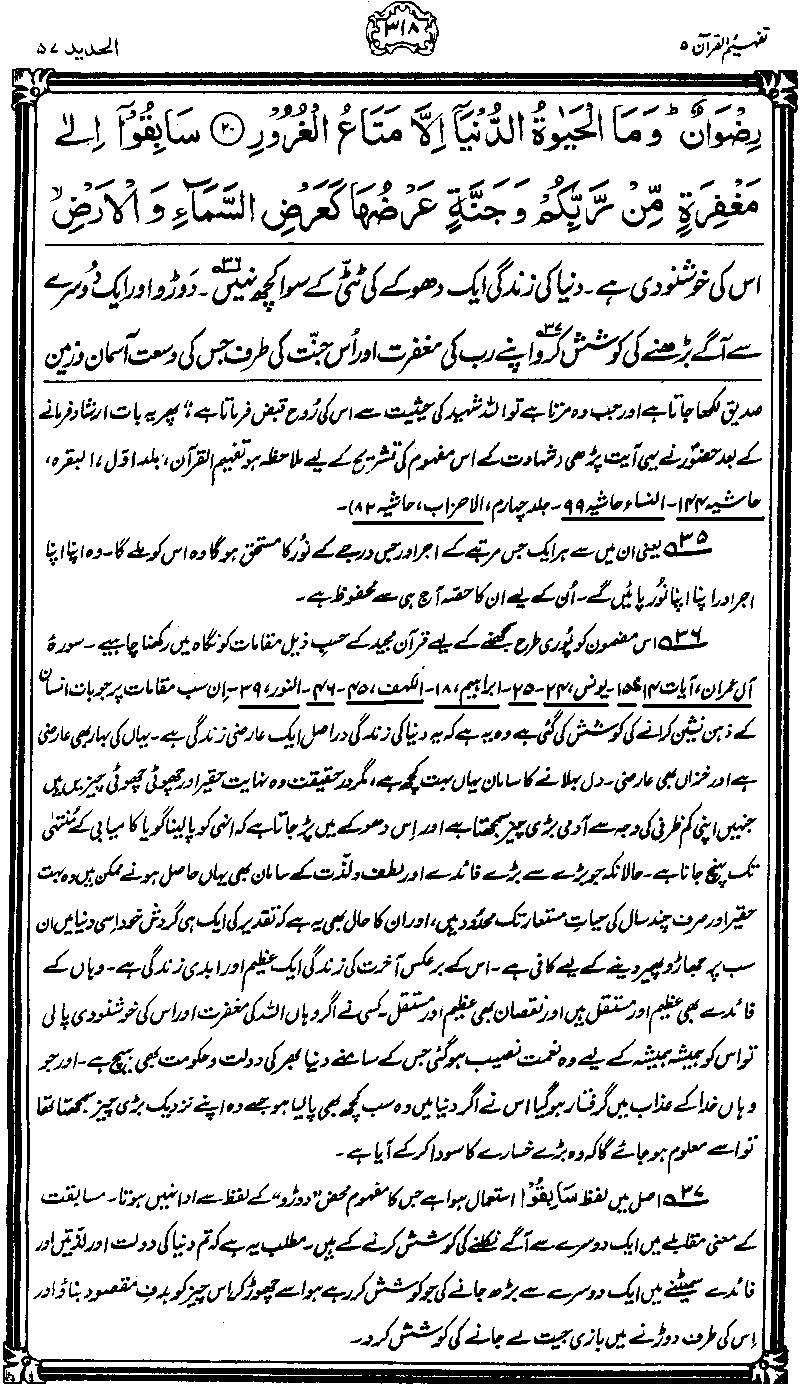 تفہیم القرآن ۵
۳۱۸
الحدید ۵۷
رِضْوَانٌ ؕ وَمَا الْحَیٰوةُ الدُّنْیَاۤ اِلَّا مَتَاعُ الْغُرُوْرِ ﴿۲۰﴾ سَابِقُوْۤا اِلٰی
مَغْفِرَةٍ مِّنْ رَّبِّکُمْ وَجَنَّةٍ عَرْضُهَا کَعَرْضِ السَّمَآءِ وَ الْاَرْضِ ۙ
اس کی خوشنودی ہے۔ دنیا کی زندگی ایک دھوکے کی ٹٹّی کے سوا کچھ نہیں۳۶۔ دَوڑو اور ایک دُوسرے
سے آگے بڑھنے کی کوشش کرو۳۷ اپنے رب کی مغفرت اور اُس جنّت کی طرف جس کی وسعت آسمان و زمین
صدیق لکھا جاتا ہے اور جب وہ مرتا ہے تو اللہ شہید کی حیثیت سے اس کی رُوح قبض فرماتا ہے“، پھر یہ بات ارشاد فرمانے
کے بعد حضورؐ نے یہی آیت پڑھی (شہادت کے اس مفہوم کی تشریح کے لیے ملاحظہ ہو تفہیم القرآن، جلد اوّل، البقرہ،
حاشیہ ۱۴۴۔ النساء حاشیہ ۹۹۔ جلد چہارم، الاحزاب، حاشیہ ۸۲)۔
۳۵ یعنی ان میں سے ہر ایک جس مرتبے کے اجر اور جس درجے کے نُور کا مستحق ہوگا وہ اس کو ملے گا۔ وہ اپنا اپنا
اجر اور اپنا اپنا نُور پائیں گے۔ اُن کے لیے ان کا حصّہ آج ہی سے محفوظ ہے۔
۳۶ اس مضمون کو پُوری طرح سمجھنے کے لیے قرآن مجید کے حسبِ ذیل مقامات کو نگاہ میں رکھنا چاہیے۔ سورۂ
آل عمران، آیات ۱۴، ۱۵۔ یونس، ۲۴۔ ۲۵۔ ابراہیم، ۱۸۔ الکہف، ۴۵۔ ۴۶۔ النور، ۳۹۔ اِن سب مقامات پر جو بات انسان
کے ذہن نشین کرانے کی کوشش کی گئی ہے وہ یہ ہے کہ یہ دنیا کی زندگی دراصل ایک عارضی زندگی ہے۔ یہاں کی بہار بھی عارضی
ہے اور خزاں بھی عارضی۔ دل بہلانے کا سامان یہاں بہت کچھ ہے، مگر درحقیقت وہ نہایت حقیر اور چھوٹی چھوٹی چیزیں ہیں
جنہیں اپنی کم ظرفی کی وجہ سے آدمی بڑی چیز سمجھتا ہے اور اِس دھوکے میں پڑ جاتا ہے کہ انہی کو پا لینا گویا کامیابی کے مُنتہیٰ
تک پہنچ جانا ہے۔ حالانکہ جو بڑے سے بڑے فائدے اور لطف و لذّت کے سامان بھی یہاں حاصل ہونے ممکن ہیں وہ بہت
حقیر اور صرف چند سال کی حیاتِ مستعار تک محدُود ہیں، اور ان کا حال بھی یہ ہے کہ تقدیر کی ایک ہی گردش خود اسی دنیا میں ان
سب پر جھاڑو پھیر دینے کے لیے کافی ہے۔ اس کے برعکس آخرت کی زندگی ایک عظیم اور ابدی زندگی ہے۔ وہاں کے
فائدے بھی عظیم اور مستقل ہیں اور نقصان بھی عظیم اور مستقل۔ کسی نے اگر وہاں اللہ کی مغفرت اور اس کی خوشنودی پا لی
تو اس کو ہمیشہ ہمیشہ کے لیے وہ نعمت نصیب ہوگئی جس کے سامنے دنیا بھر کی دولت و حکومت بھی ہیچ ہے۔ اور جو
وہاں خدا کے عذاب میں گرفتار ہوگیا اس نے اگر دنیا میں وہ سب کچھ بھی پا لیا ہو جسے وہ اپنے نزدیک بڑی چیز سمجھتا تھا
تو اسے معلوم ہو جائے گا کہ وہ بڑے خسارے کا سودا کرکے آیا ہے۔
۳۷ اصل میں لفظ سَابِقُوْۤا استعمال ہوا ہے جس کا مفہوم محض ”دوڑو“ کے لفظ سے ادا نہیں ہوتا۔ مسابقت
کے معنی مقابلے میں ایک دوسرے سے آگے نکلنے کی کوشش کرنے کے ہیں۔ مطلب یہ ہے کہ تم دنیا کی دولت اور لذّتیں اور
فائدے سمیٹنے میں ایک دوسرے سے بڑھ جانے کی جو کوشش کر رہے ہو اسے چھوڑ کر اس چیز کو ہدفِ مقصود بناؤ اور
اِس کی طرف دوڑنے میں بازی جیت لے جانے کی کوشش کرو۔